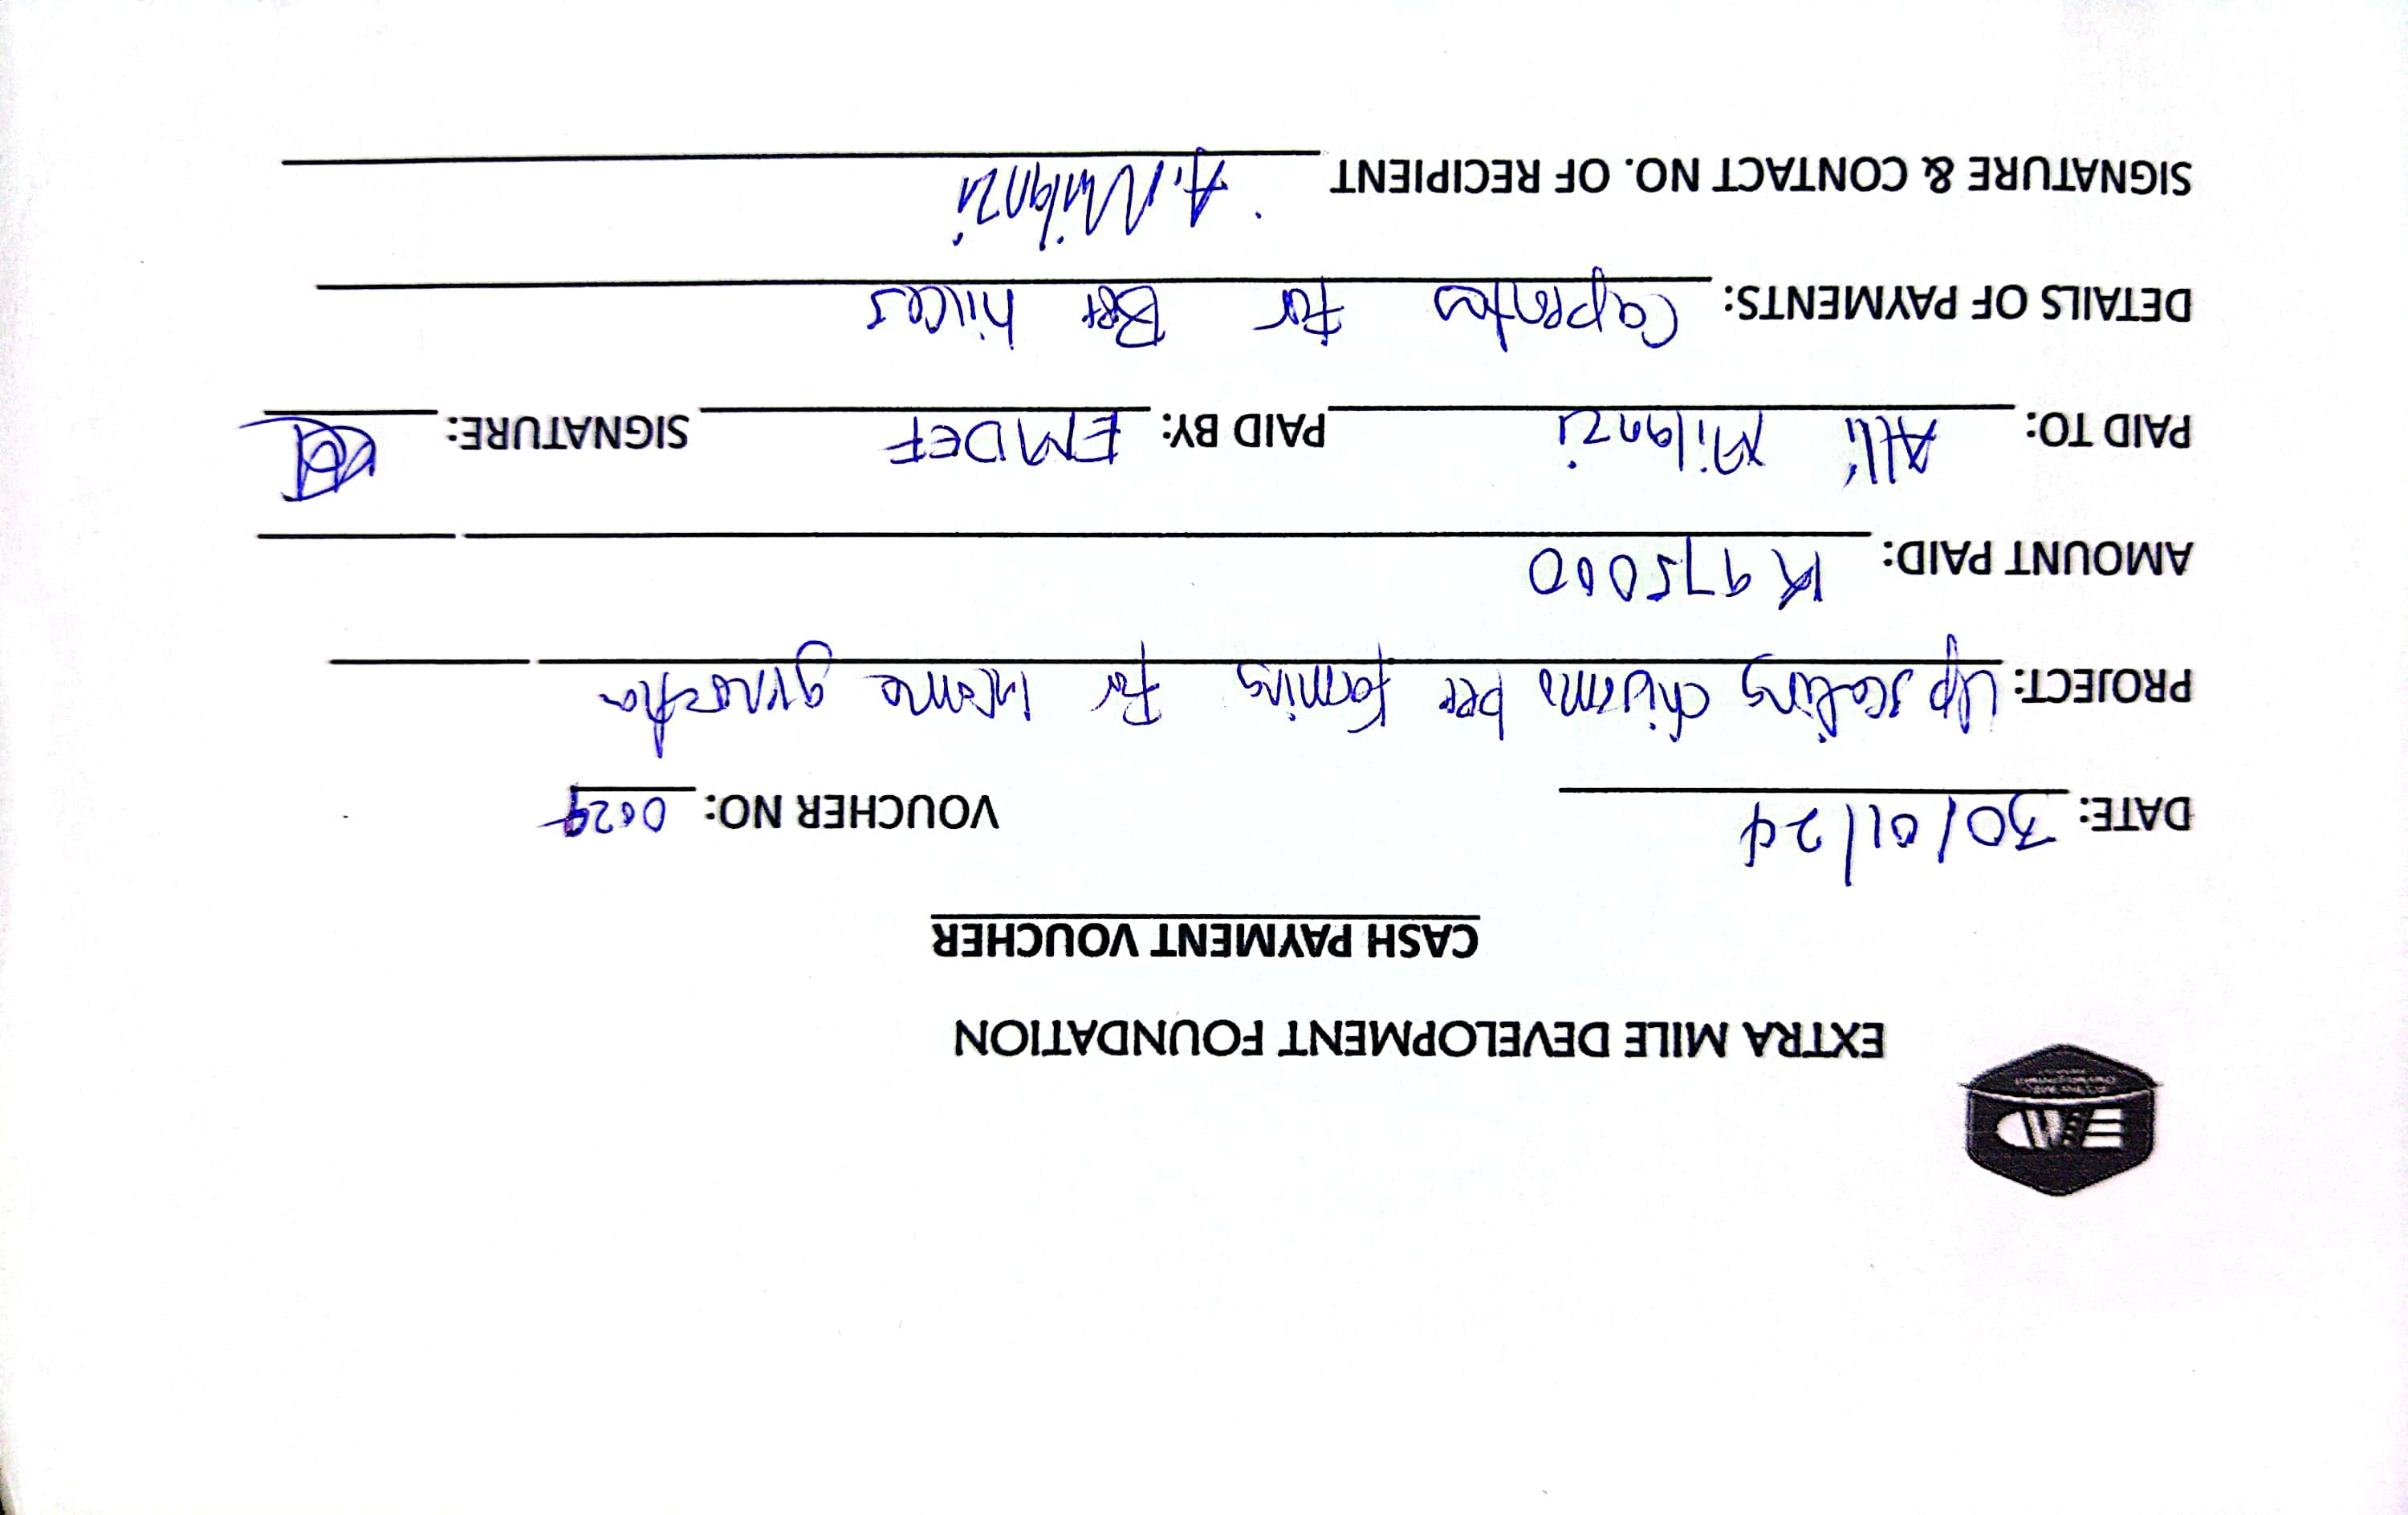 EMD
EXTRA MILE DEVELOPMENT FOUNDATION
CASH PAYMENT VOUCHER
DATE: 30/01/24 VOUCHER NO: 0029
PROJECT: Up scaling chisomo bee farming for income
AMOUNT PAID: K975000
PAID TO: Alli Milanzi PAID BY: EMDEF SIGNATURE:
DETAILS OF PAYMENTS: for Bee
SIGNATURE & CONTACT NO. OF RECIPIENT A. Milanzi